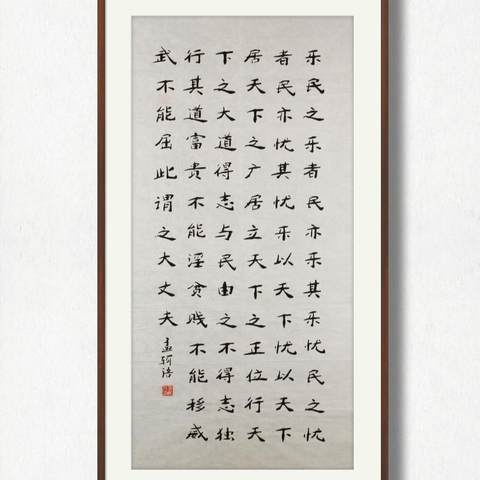 乐民之乐者民亦乐其乐忧民之忧
者民亦忧其忧乐以天下忧以天下
居天下之广居立天下之正位行天
下之大道得志与民由之不得志独
行其道富贵不能淫贫贱不能移威
武不能屈此谓之大丈夫
孟轲语